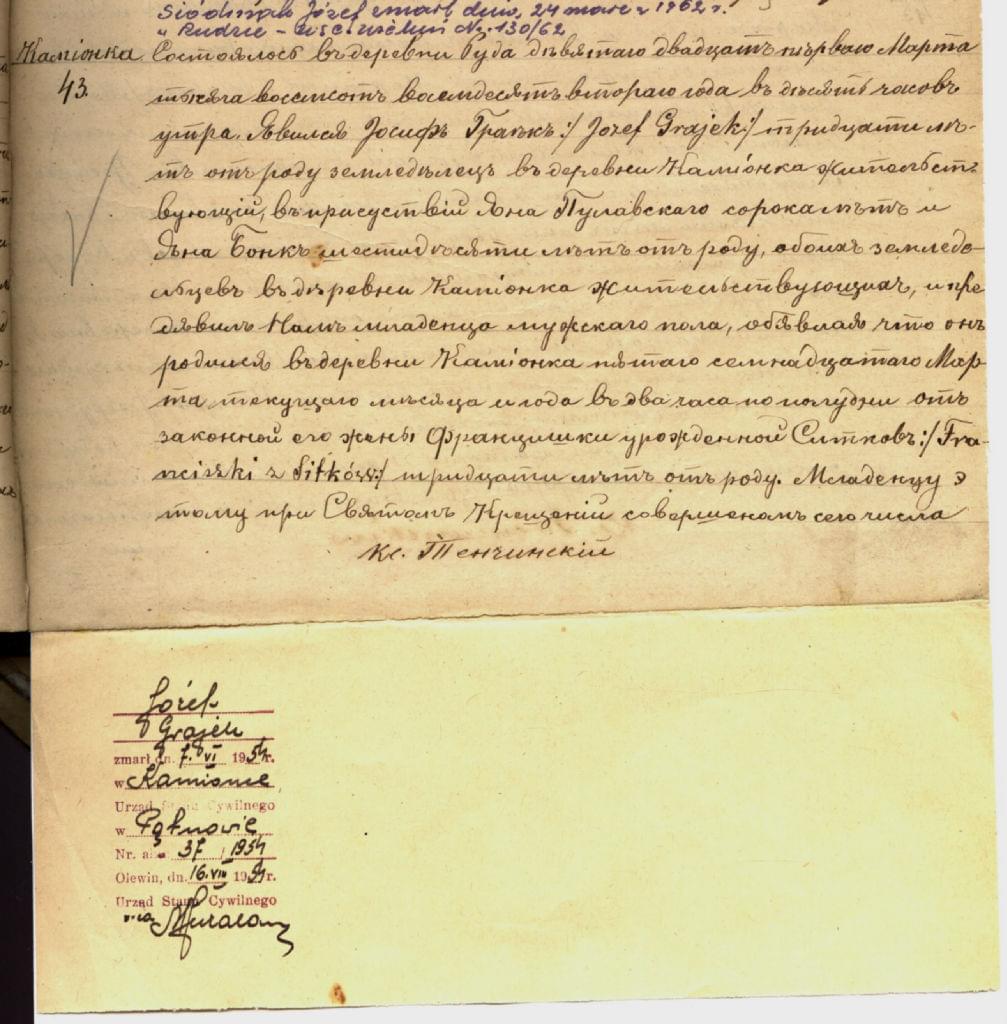 Siódmak Józef zmarł dnia 24 marca 1962 r.
w Rudzie – 130/62
Каміонка
43.
Состоялось въ деревни Руда девятаго двадцать перваго Марта
тысяча восемсотъ восемдесятъ втораго года въ десять часовъ
утра. Явился Іосифъ Граекъ :/ Jozef Grajek :/ тридцати лѣ-
тъ отъ роду земледѣлецъ въ деревни Каміонка жительст-
вующій, въ присуствіи Яна Пулавскаго сорока лѣтъ и
Яна Бонкъ шестидѣсяти лѣтъ отъ роду, обоихъ земледѣ-
льцевъ въ дѣревни Каміонка жительствующихъ, и пре
дявилъ Намъ младенца мужскаго пола, обявляя что онъ
родился въ деревни Каміонка пятаго семнадцатаго Мар-
та текущаго мѣсяца и года въ два часа по полудни отъ
законной его жены Францишки урожденной Ситковъ :/ Fra-
nciszki z Sitków :/ тридцати лѣтъ отъ роду. Младенцу э
тому при Святомъ Крещеніи совершеномъ сего числа
Кс. Тенчинскій
Józef
Grajek
zmarł dn. 7. VI 1954 r.
w Kamionce
Urząd Stanu Cywilnego
w Pątnowie
Nr. aktu 37 / 1954
Olewin, dn. 16. VIII 1954 r.
Urząd Stanu Cywilnego